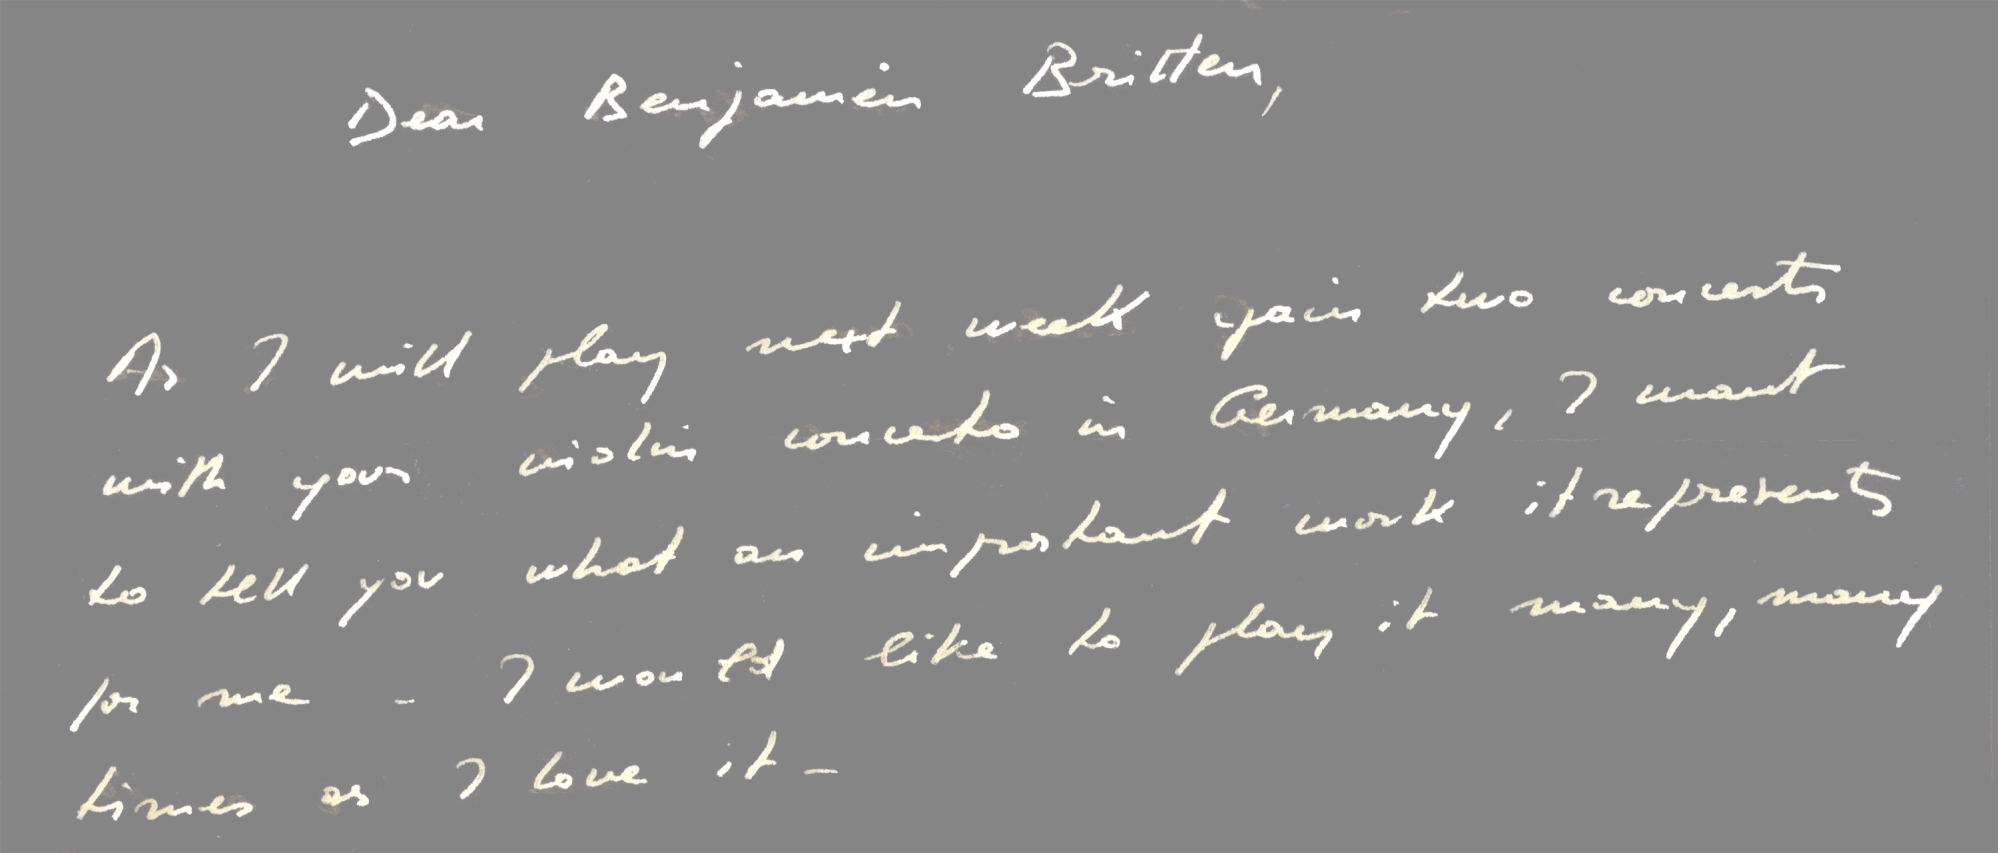 Dear Benjamin Britten,
As I will play next week again two concerts
with your violin concerto in Germany, I want
to tell you what an important work it represents
for me - I would like to play it many, many
times as I love it -